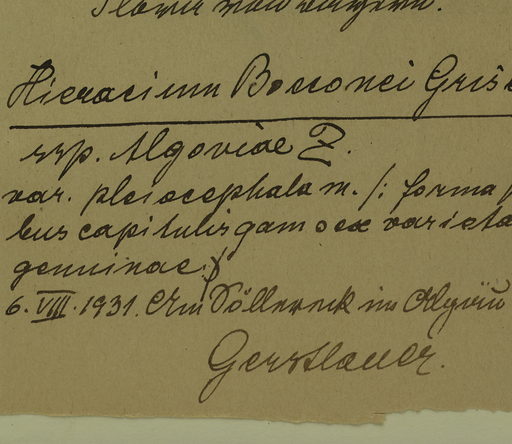 Hieracium Bocconei Gris
ssp. Algoviae Z.
var. pleiocephala m. /: forma
bus capitulis gamoex varieta
genuinae :/
6. VIII. 1931. Am Söllereck im Algäu
Gerstlauer.